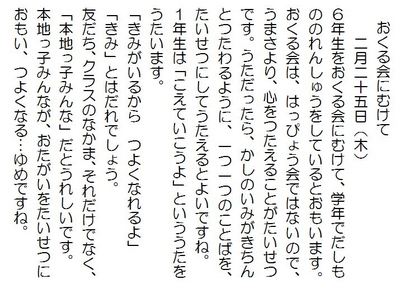 おくる会にむけて
二月二十五日（木）
６年生をおくる会にむけて、学年でだしも
ののれんしゅうをしているとおもいます。
おくる会は、はっぴょう会ではないので、
うまさより、心をつたえることがたいせつ
です。うただったら、かしのいみがきちん
とつたわるように、一つ一つのことばを、
たいせつにしてうたえるとよいですね。
１年生は「こえていこうよ」といううたを
うたいます。
「きみがいるから　つよくなれるよ」
「きみ」とはだれでしょう。
友だち、クラスのなかま、それだけでなく、
「本地っ子みんな」だとうれしいです。
本地っ子みんなが、おたがいをたいせつに
おもい、つよくなる…ゆめですね。